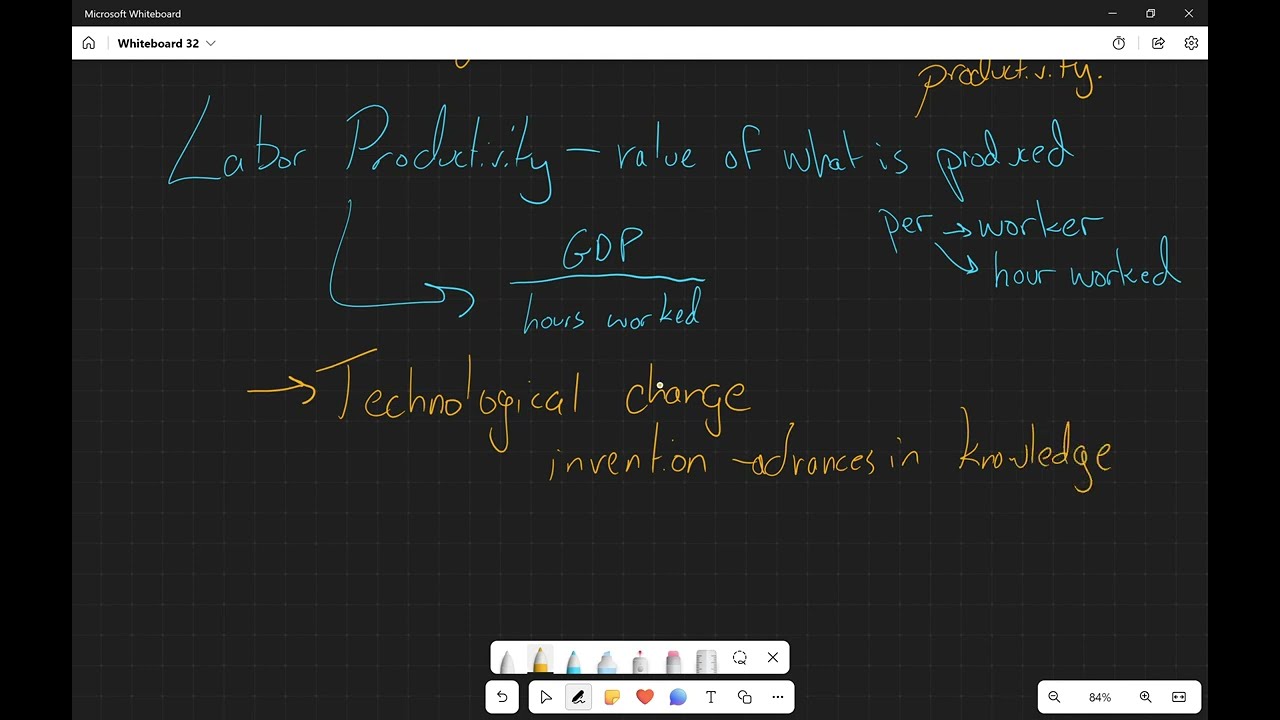 Microsoft Whiteboard
Whiteboard 32
productivity.
Labor Productivity – value of what is produced
per → worker
hour worked
GDP
hours worked
→ Technological change
invention – advances in knowledge
84%